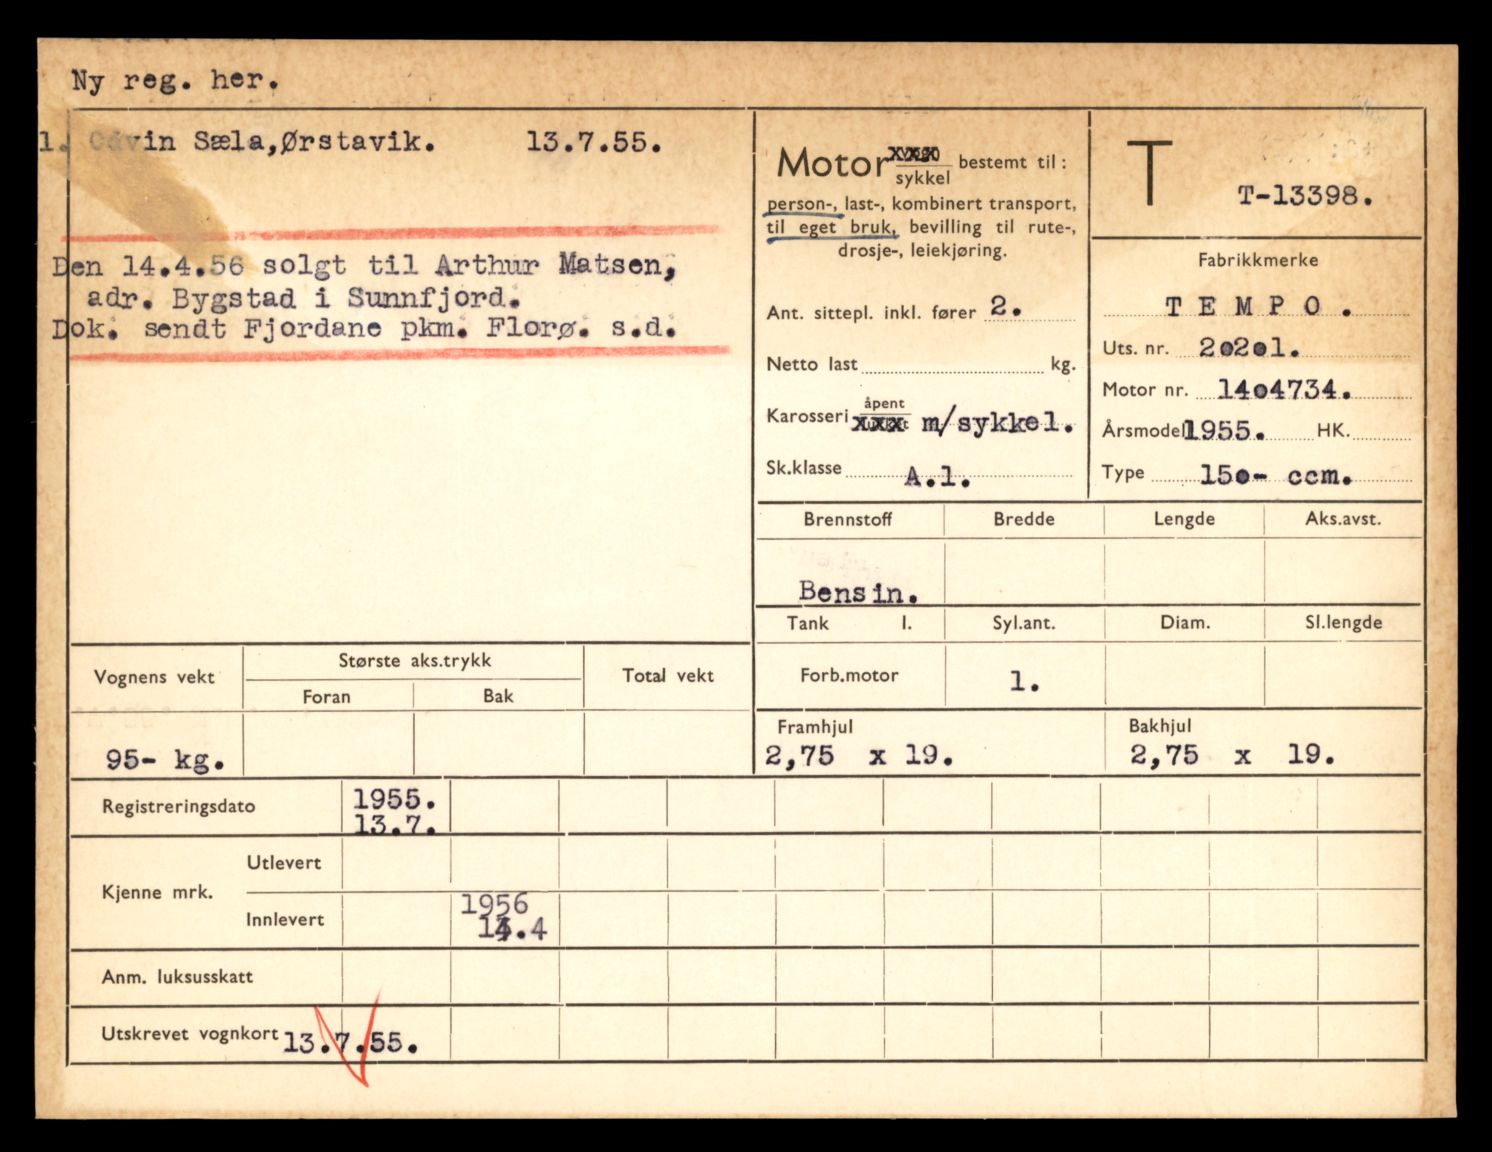 Ny reg. her.
1. Odvin Sæla,Ørstavik. 13.7.55.
Den 14.4.56 solgt til Arthur Matsen,
adr. Bygstad i Sunnfjord.
Dok. sendt Fjordane pkm. Florø. s.d.
Motor vogn
sykkel bestemt til:
person-, last-, kombinert transport,
til eget bruk, bevilling til rute-,
drosje-, leiekjøring.
Ant. sittepl. inkl. fører 2.
Netto last kg.
Karosseri åpent
xxx m/sykkel.
Sk.klasse A.1.
T T-13398.
Fabrikkmerke
TEMPO.
Uts. nr. 20201.
Motor nr. 1404734.
Årsmodell 1955. HK.
Type 150- ccm.
Brennstoff Bredde Lengde Aks.avst.
Bensin.
Tank l. Syl.ant. Diam. Sl.lengde
Forb.motor 1.
Framhjul Bakhjul
2,75 x 19. 2,75 x 19.
Vognens vekt Største aks.trykk Total vekt
Foran Bak
95- kg.
Registreringsdato 1955.
13.7.
Kjenne mrk. Utlevert
Innlevert 1956
14.4
Anm. luksusskatt
Utskrevet vognkort 13.7.55.